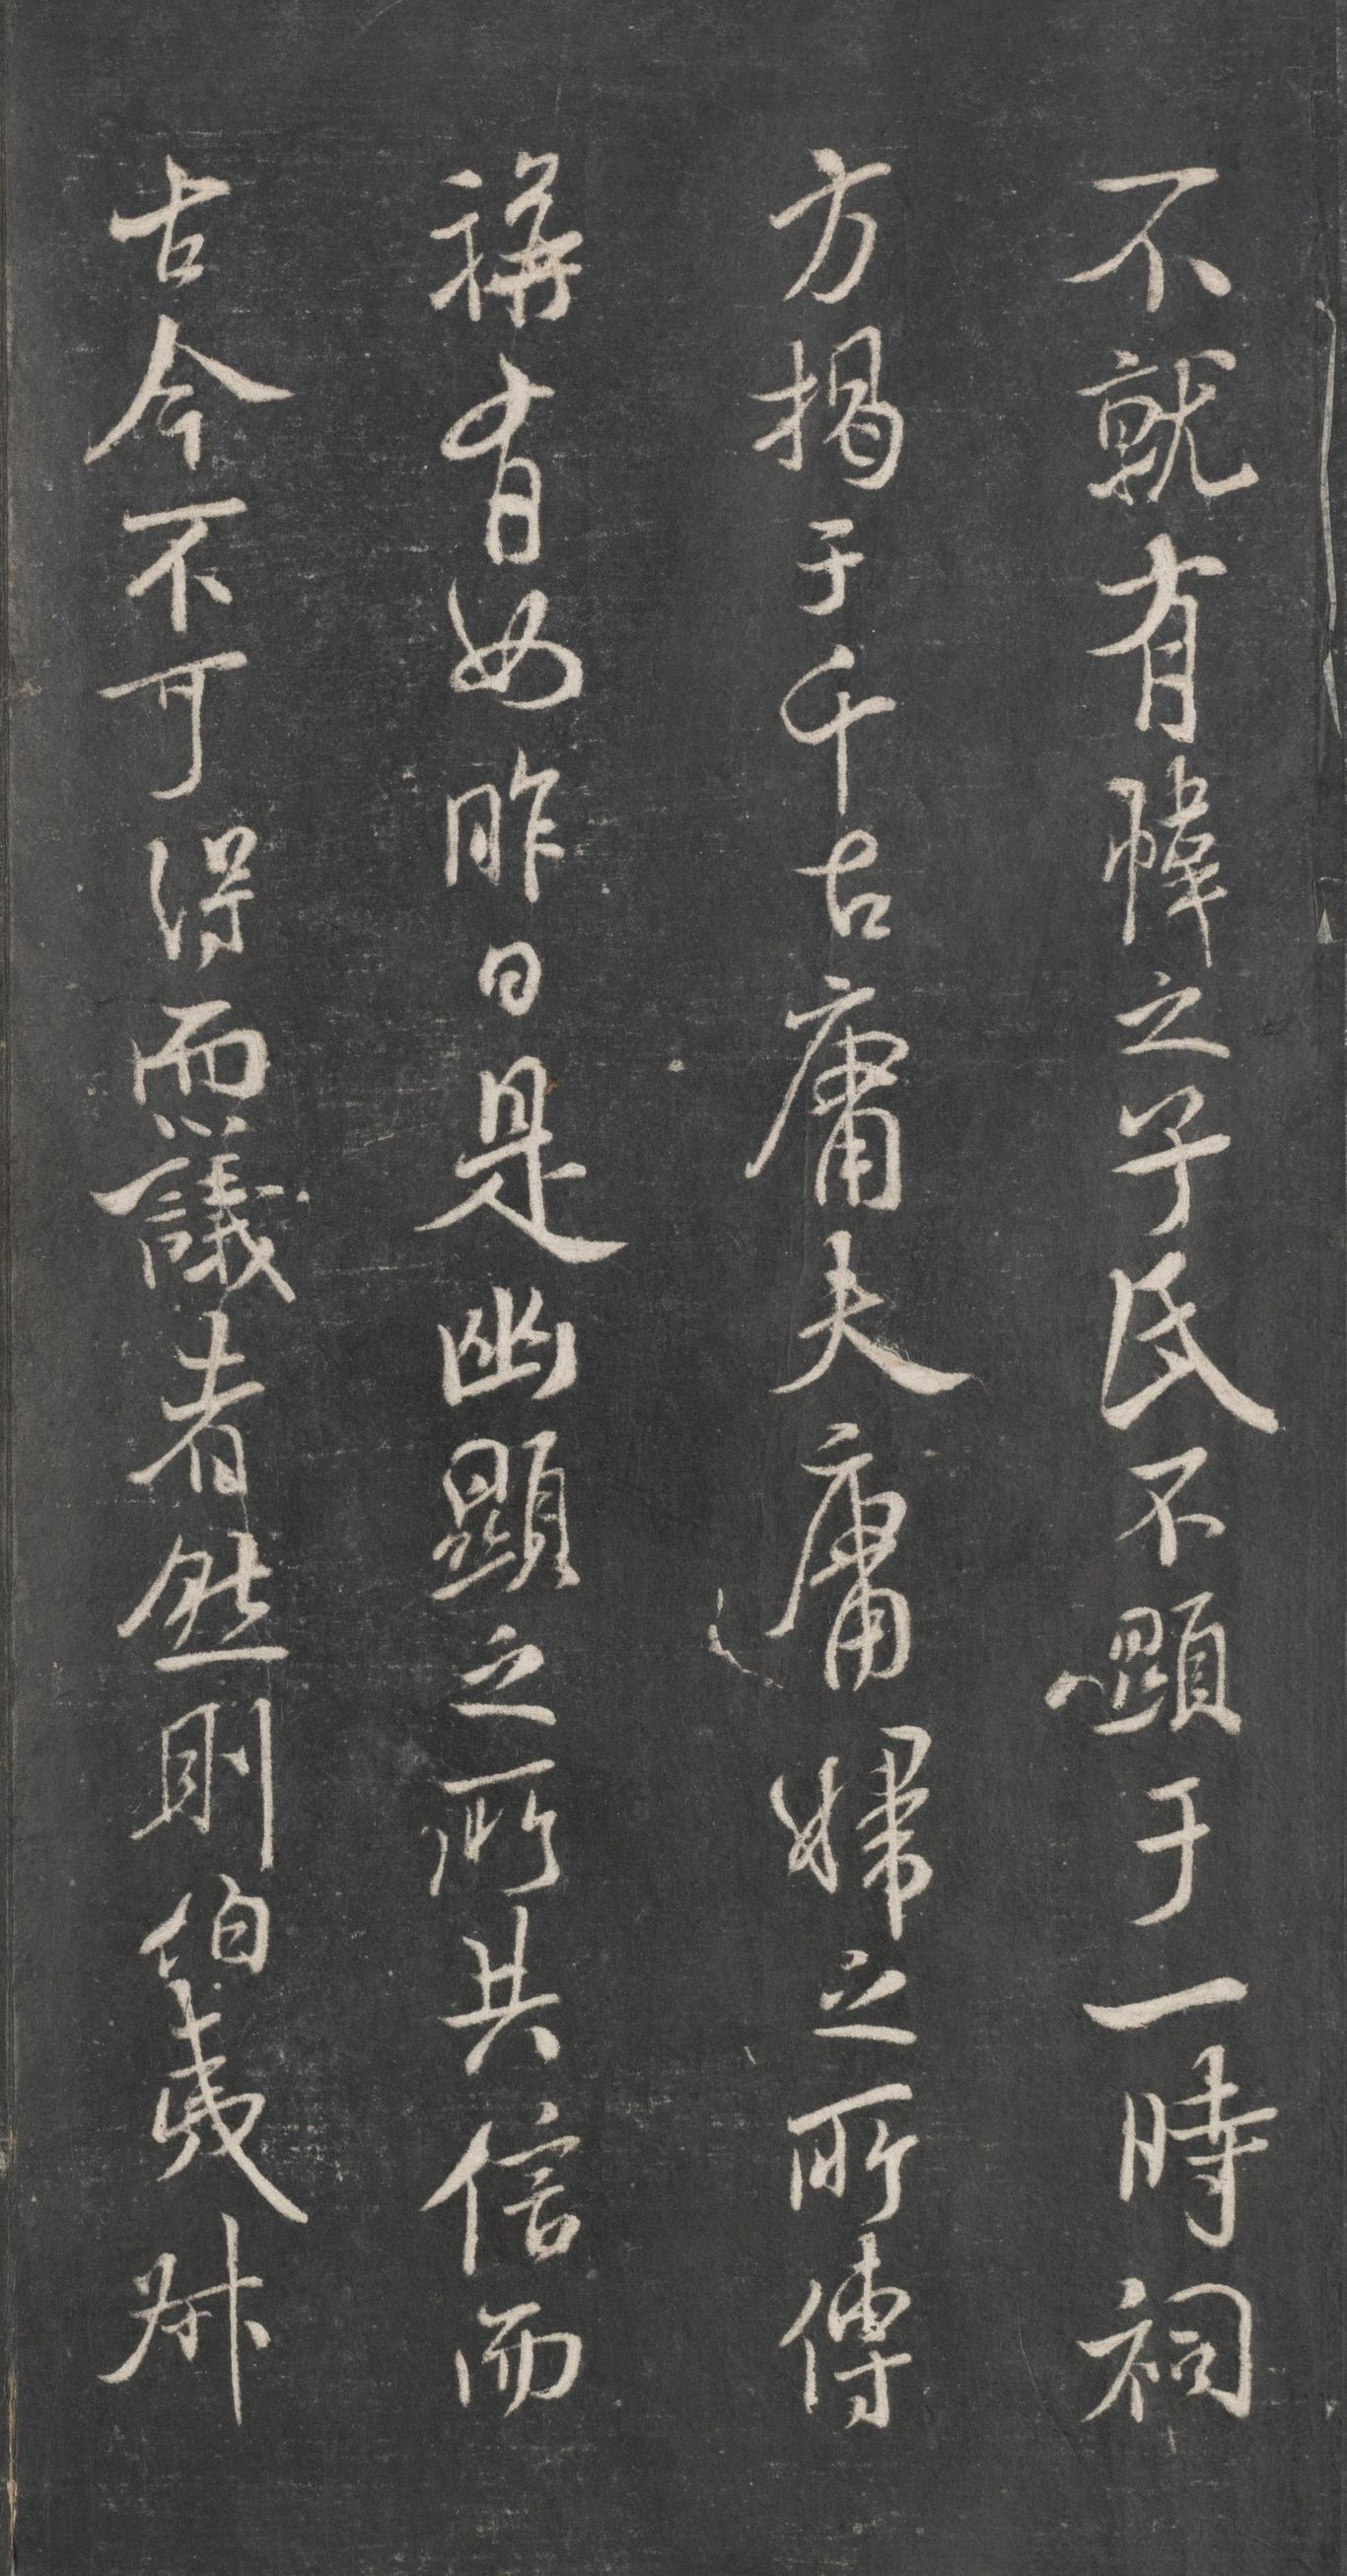 不就有幃之子氏不顯于一時祠
方揭于千古庸夫庸婦之所傳
稱有日如昨日是幽顯之所共信而
古今不可得而議者然則伯夷叔